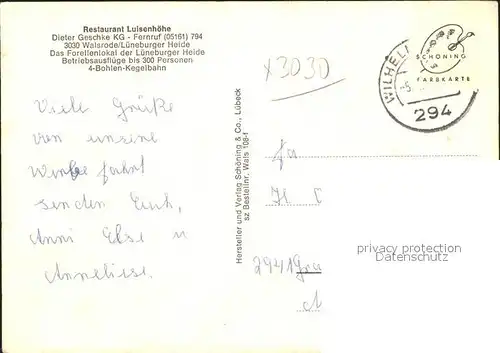 Restaurant Luisenhöhe
Dieter Geschke KG - Fernruf (05161) 794
3030 Walsrode/Lüneburger Heide
Das Forellenlokal der Lüneburger Heide
Betriebsausflüge bis 300 Personen
4-Bohlen-Kegelbahn
Viele Grüße
von unsere
fahrt
senden Euch,
Anni Else u
Anneliese.
Hersteller und Verlag Schöning & Co., Lübeck
sz Bestellnr. Wals 108-f
x3030
WILHEL
294
SCHÖNING
FARBKARTE
H
2941
privacy protection
Datenschutz